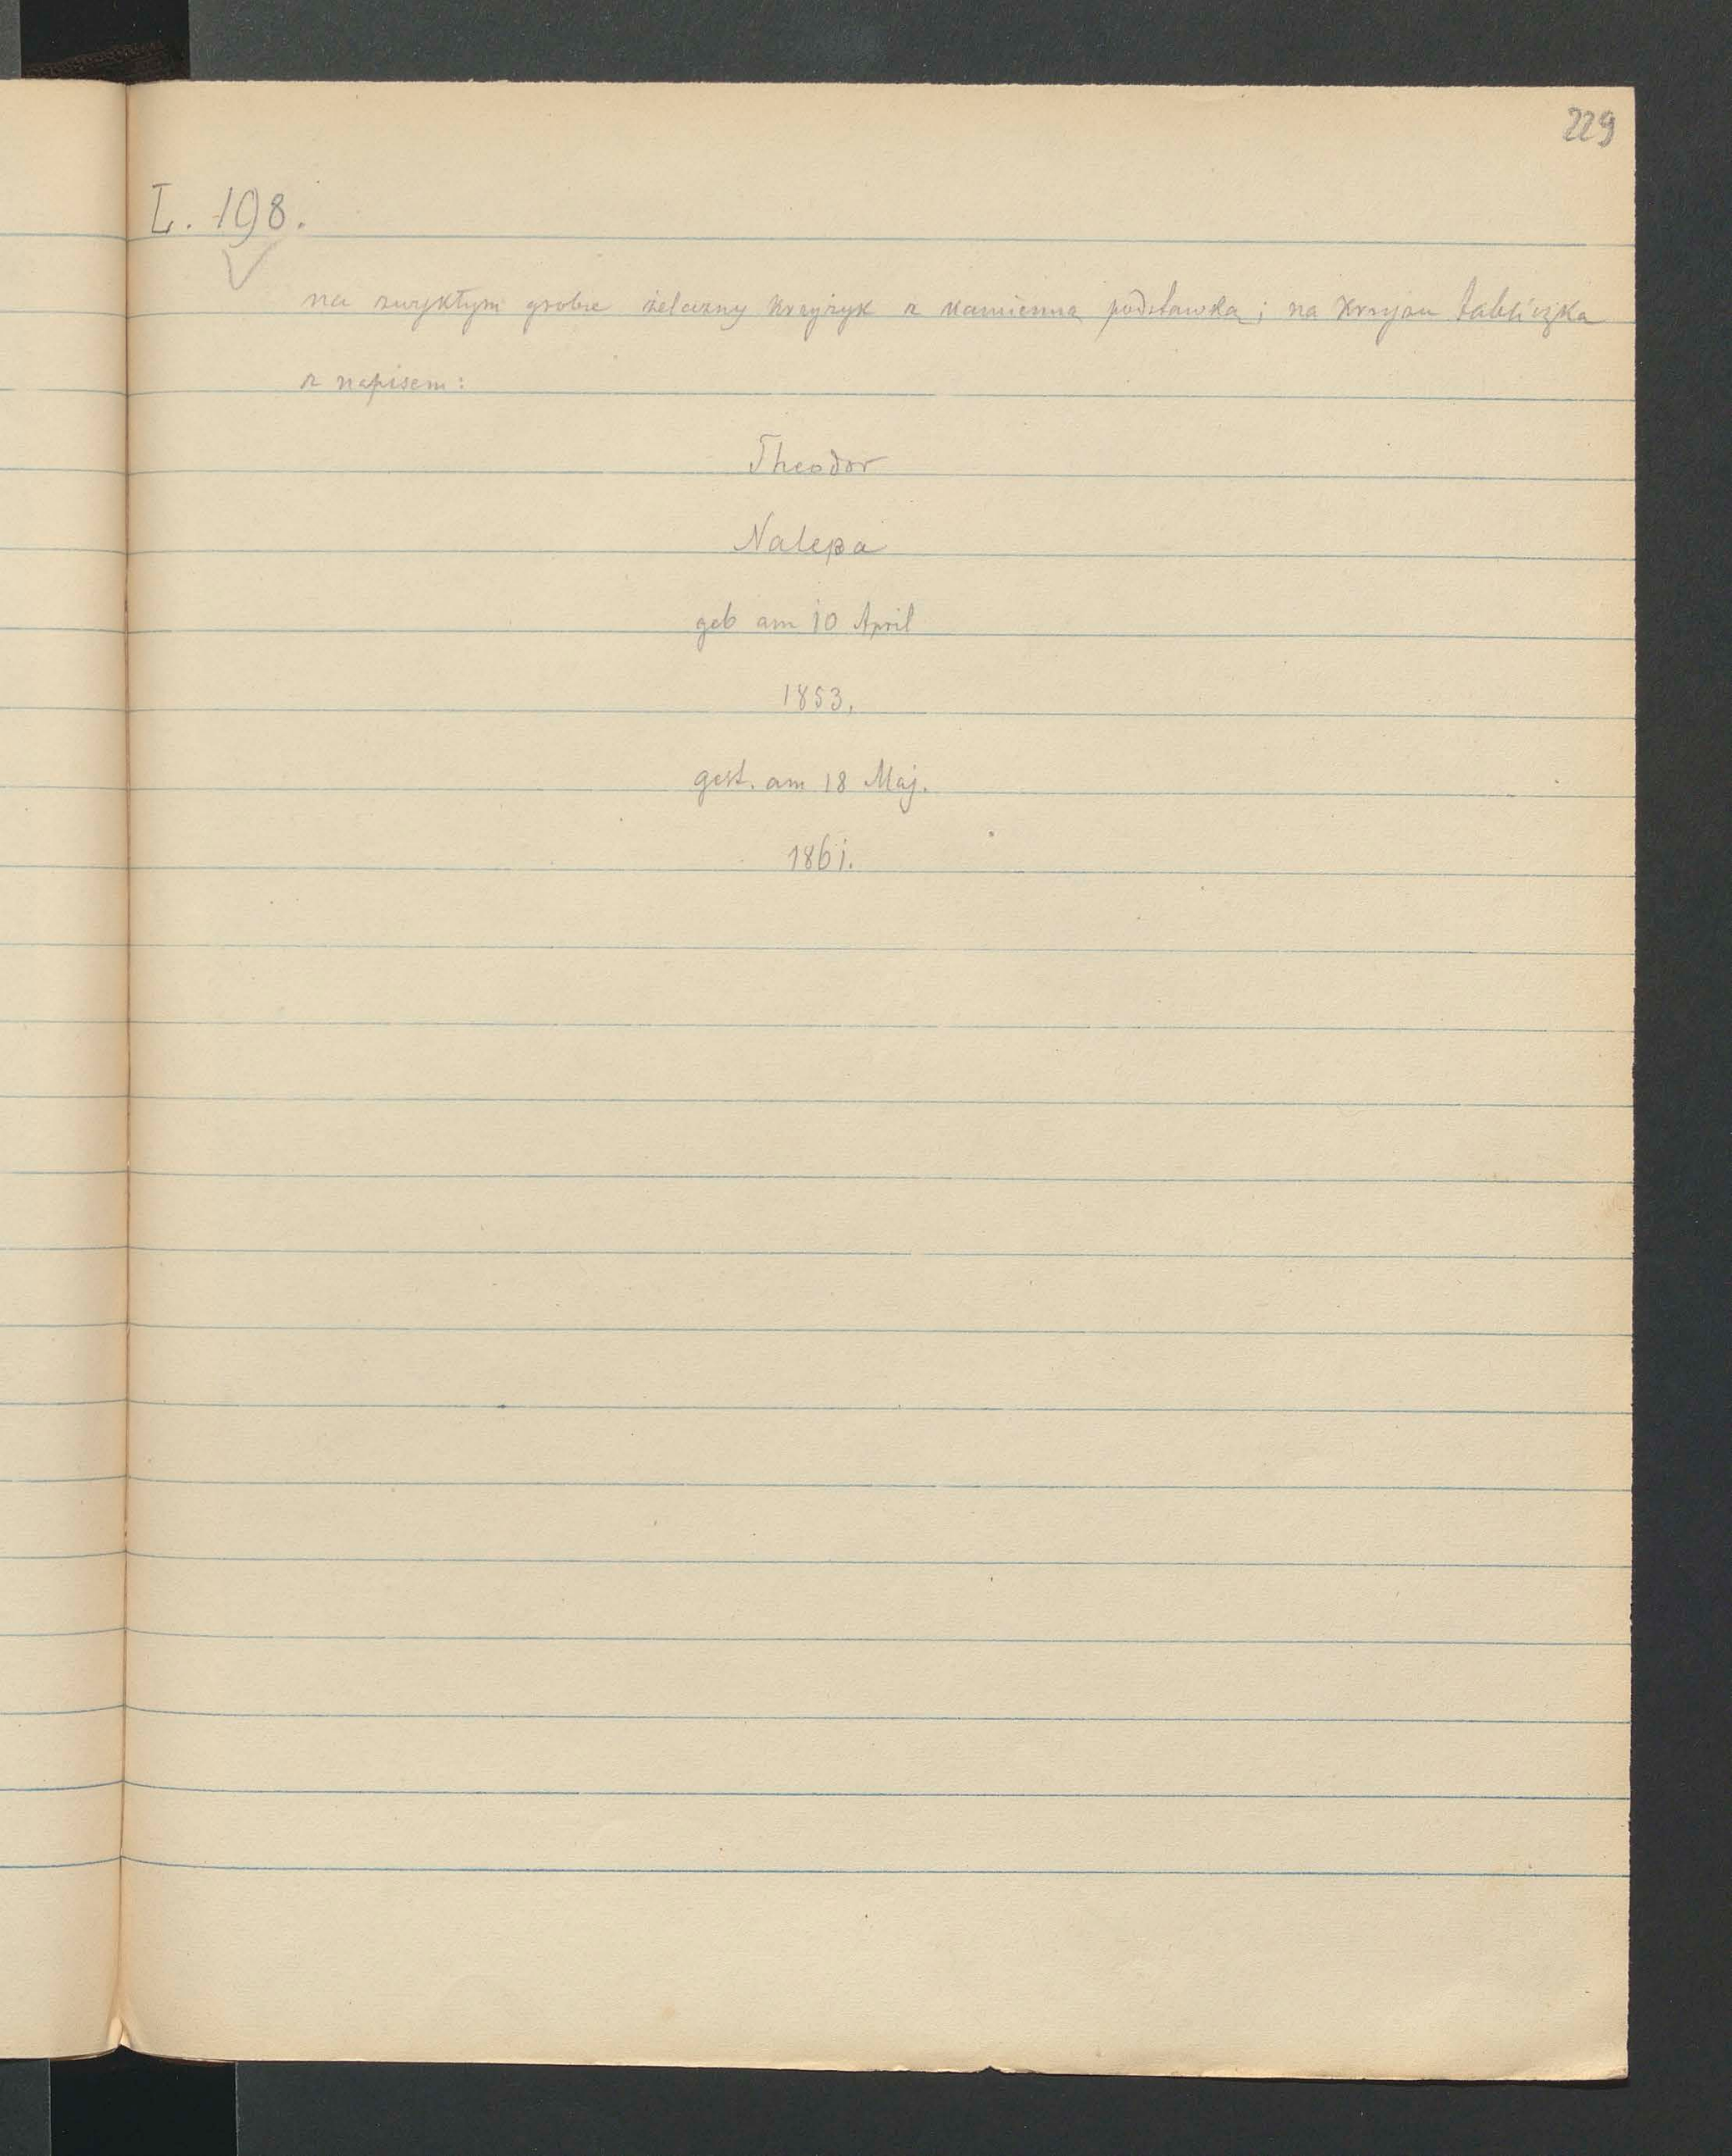 229
L. 198.
na zwykłym grobie żelazny krzyżyk z kamienną podstawką; na krzyżu tabliczka
z napisem:
Theodor
Nalepa
geb am 10 April
1853.
gest. am 18 Maj.
1861.